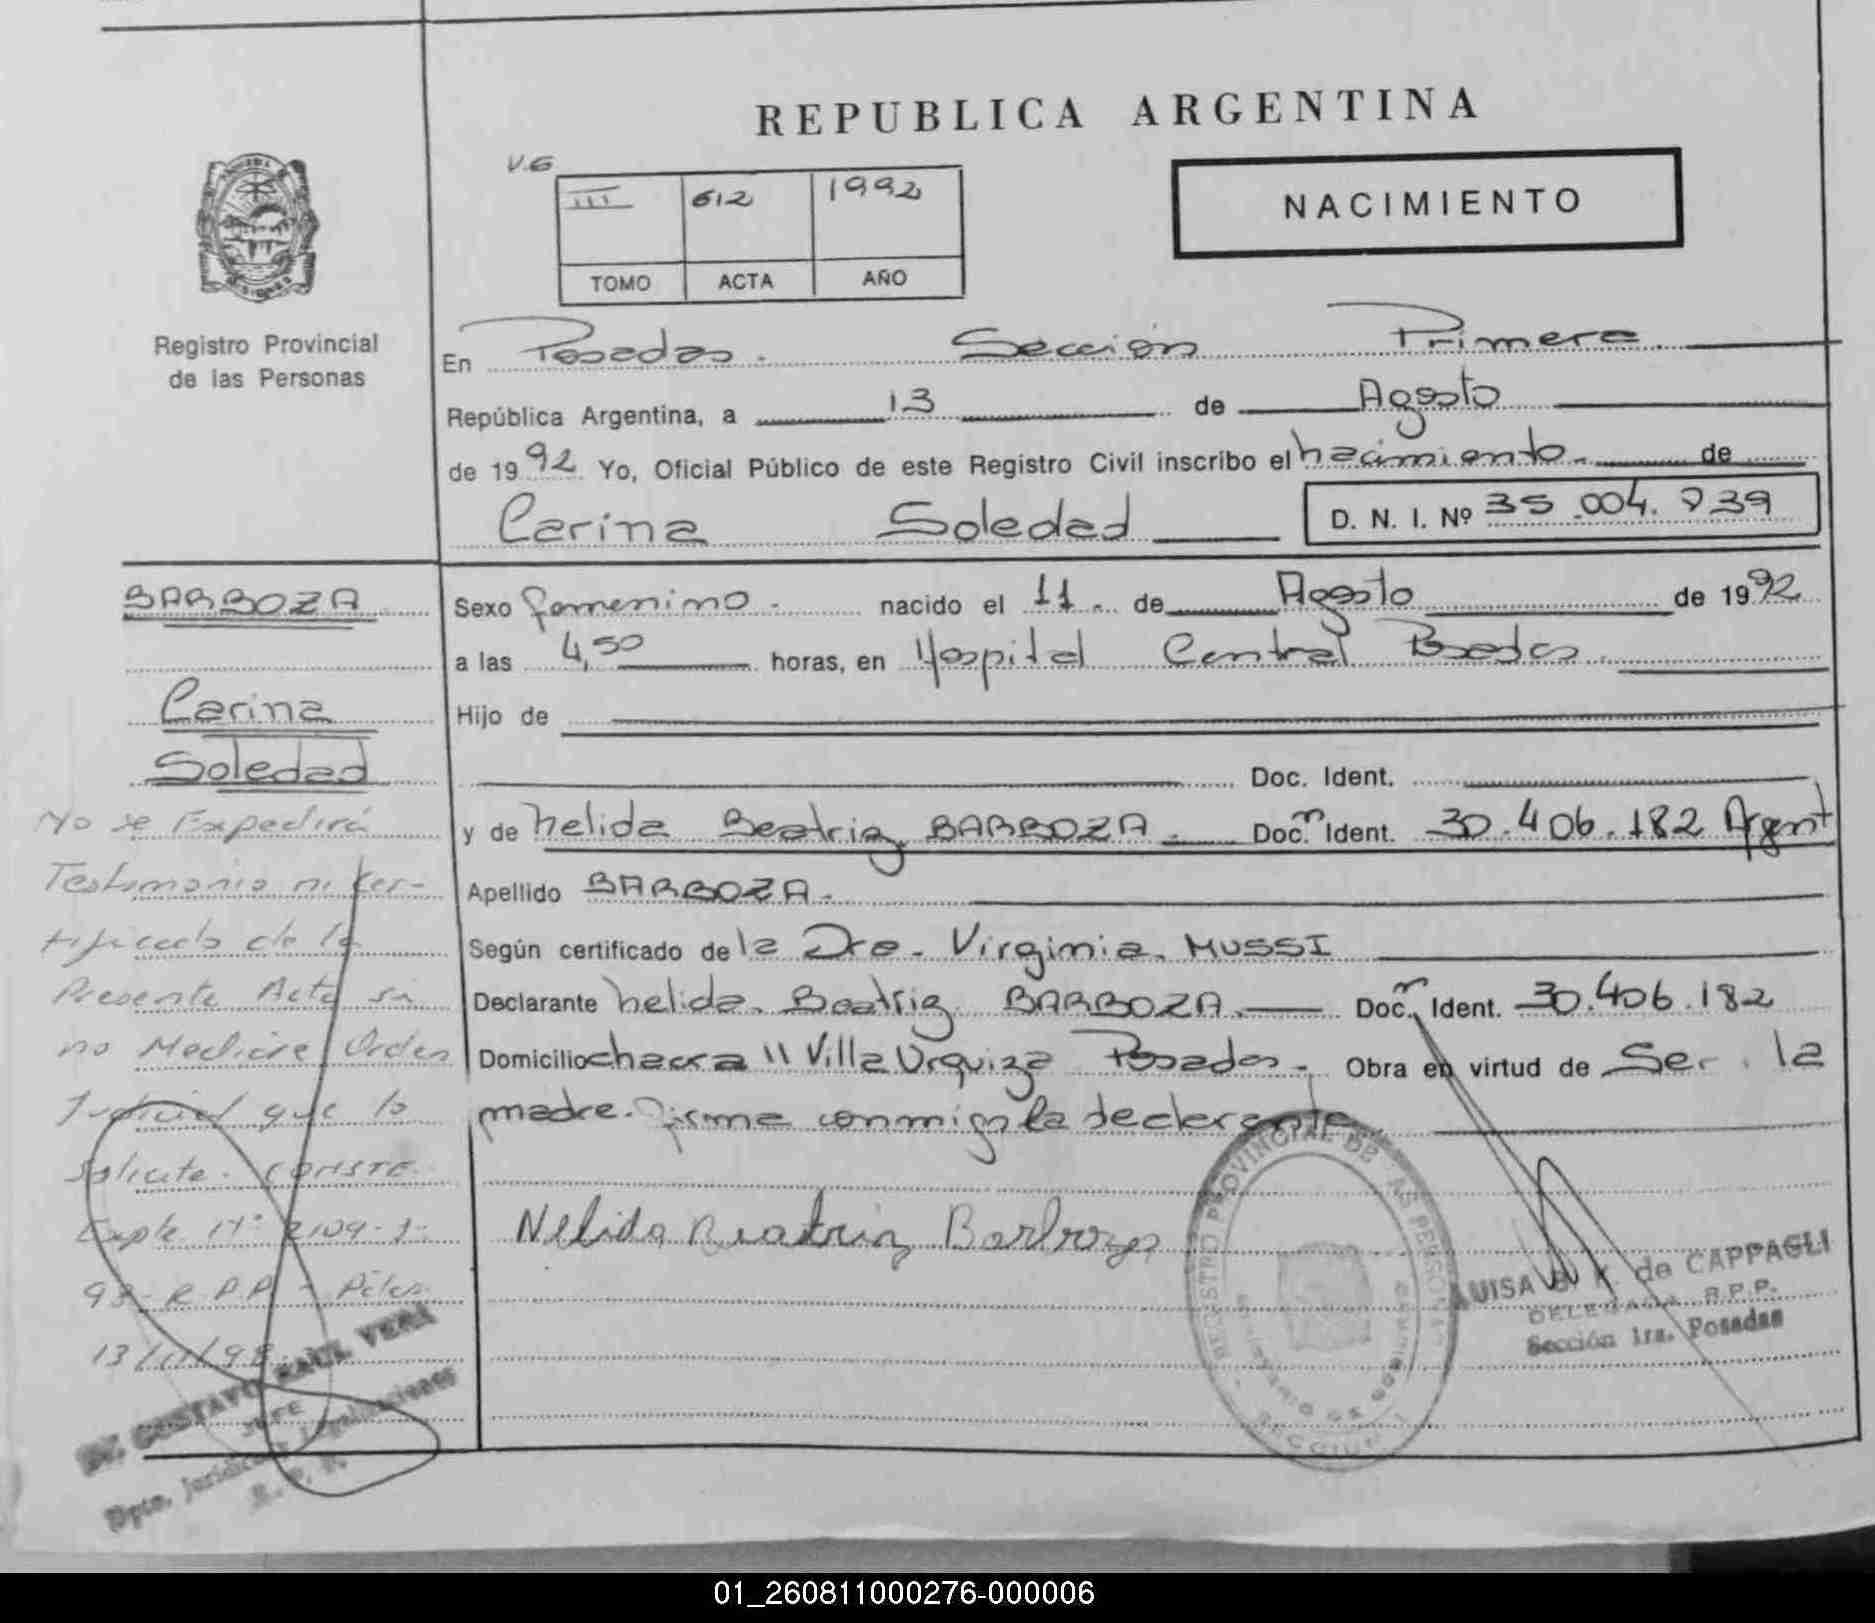 REPUBLICA ARGENTINA
V.G
III 612 1992
TOMO ACTA AÑO
NACIMIENTO
Registro Provincial
de las Personas
En Posadas. Sección Primera
República Argentina, a 13 de Agosto
de 1992 Yo, Oficial Público de este Registro Civil inscribo el nacimiento. de
Carina Soledad D. N. I. Nº 35.004.939
BARBOZA
Carina
Soledad
No se Expedirá
Testimonio ni Cer-
tificado de la
Presente Acta si
no Mediare Orden
Judicial que lo
Solicite. CONSTE.
Expte Nº 2109-J-
93-R.P.P.
13/11/98
GUSTAVO RAUL VERA
JEFE
Dpto. Jurídica y Legalizaciones
R. P. P.
Sexo femenino. nacido el 11. de Agosto de 1992
a las 4,50 horas, en Hospital Central Posadas
Hijo de
Doc. Ident.
y de Nelida Beatriz BARBOZA. Doc. Ident. 30.406.182 Argent
Apellido BARBOZA.
Según certificado de la Dra. Virginia MUSSI
Declarante Nelida Beatriz BARBOZA. Doc. Ident. 30.406.182
Domicilio chacra 11 Villa Urquiza Posadas. Obra en virtud de Ser la
madre. firma conmigo la declarante
Nelida Beatriz Barboza
REGISTRO PROVINCIAL DE LAS PERSONAS
MINISTERIO DE GOBIERNO
LUISA B. K. de CAPPAGLI
DELEGADA R.P.P.
Sección 1ra. Posadas
01_260811000276-000006